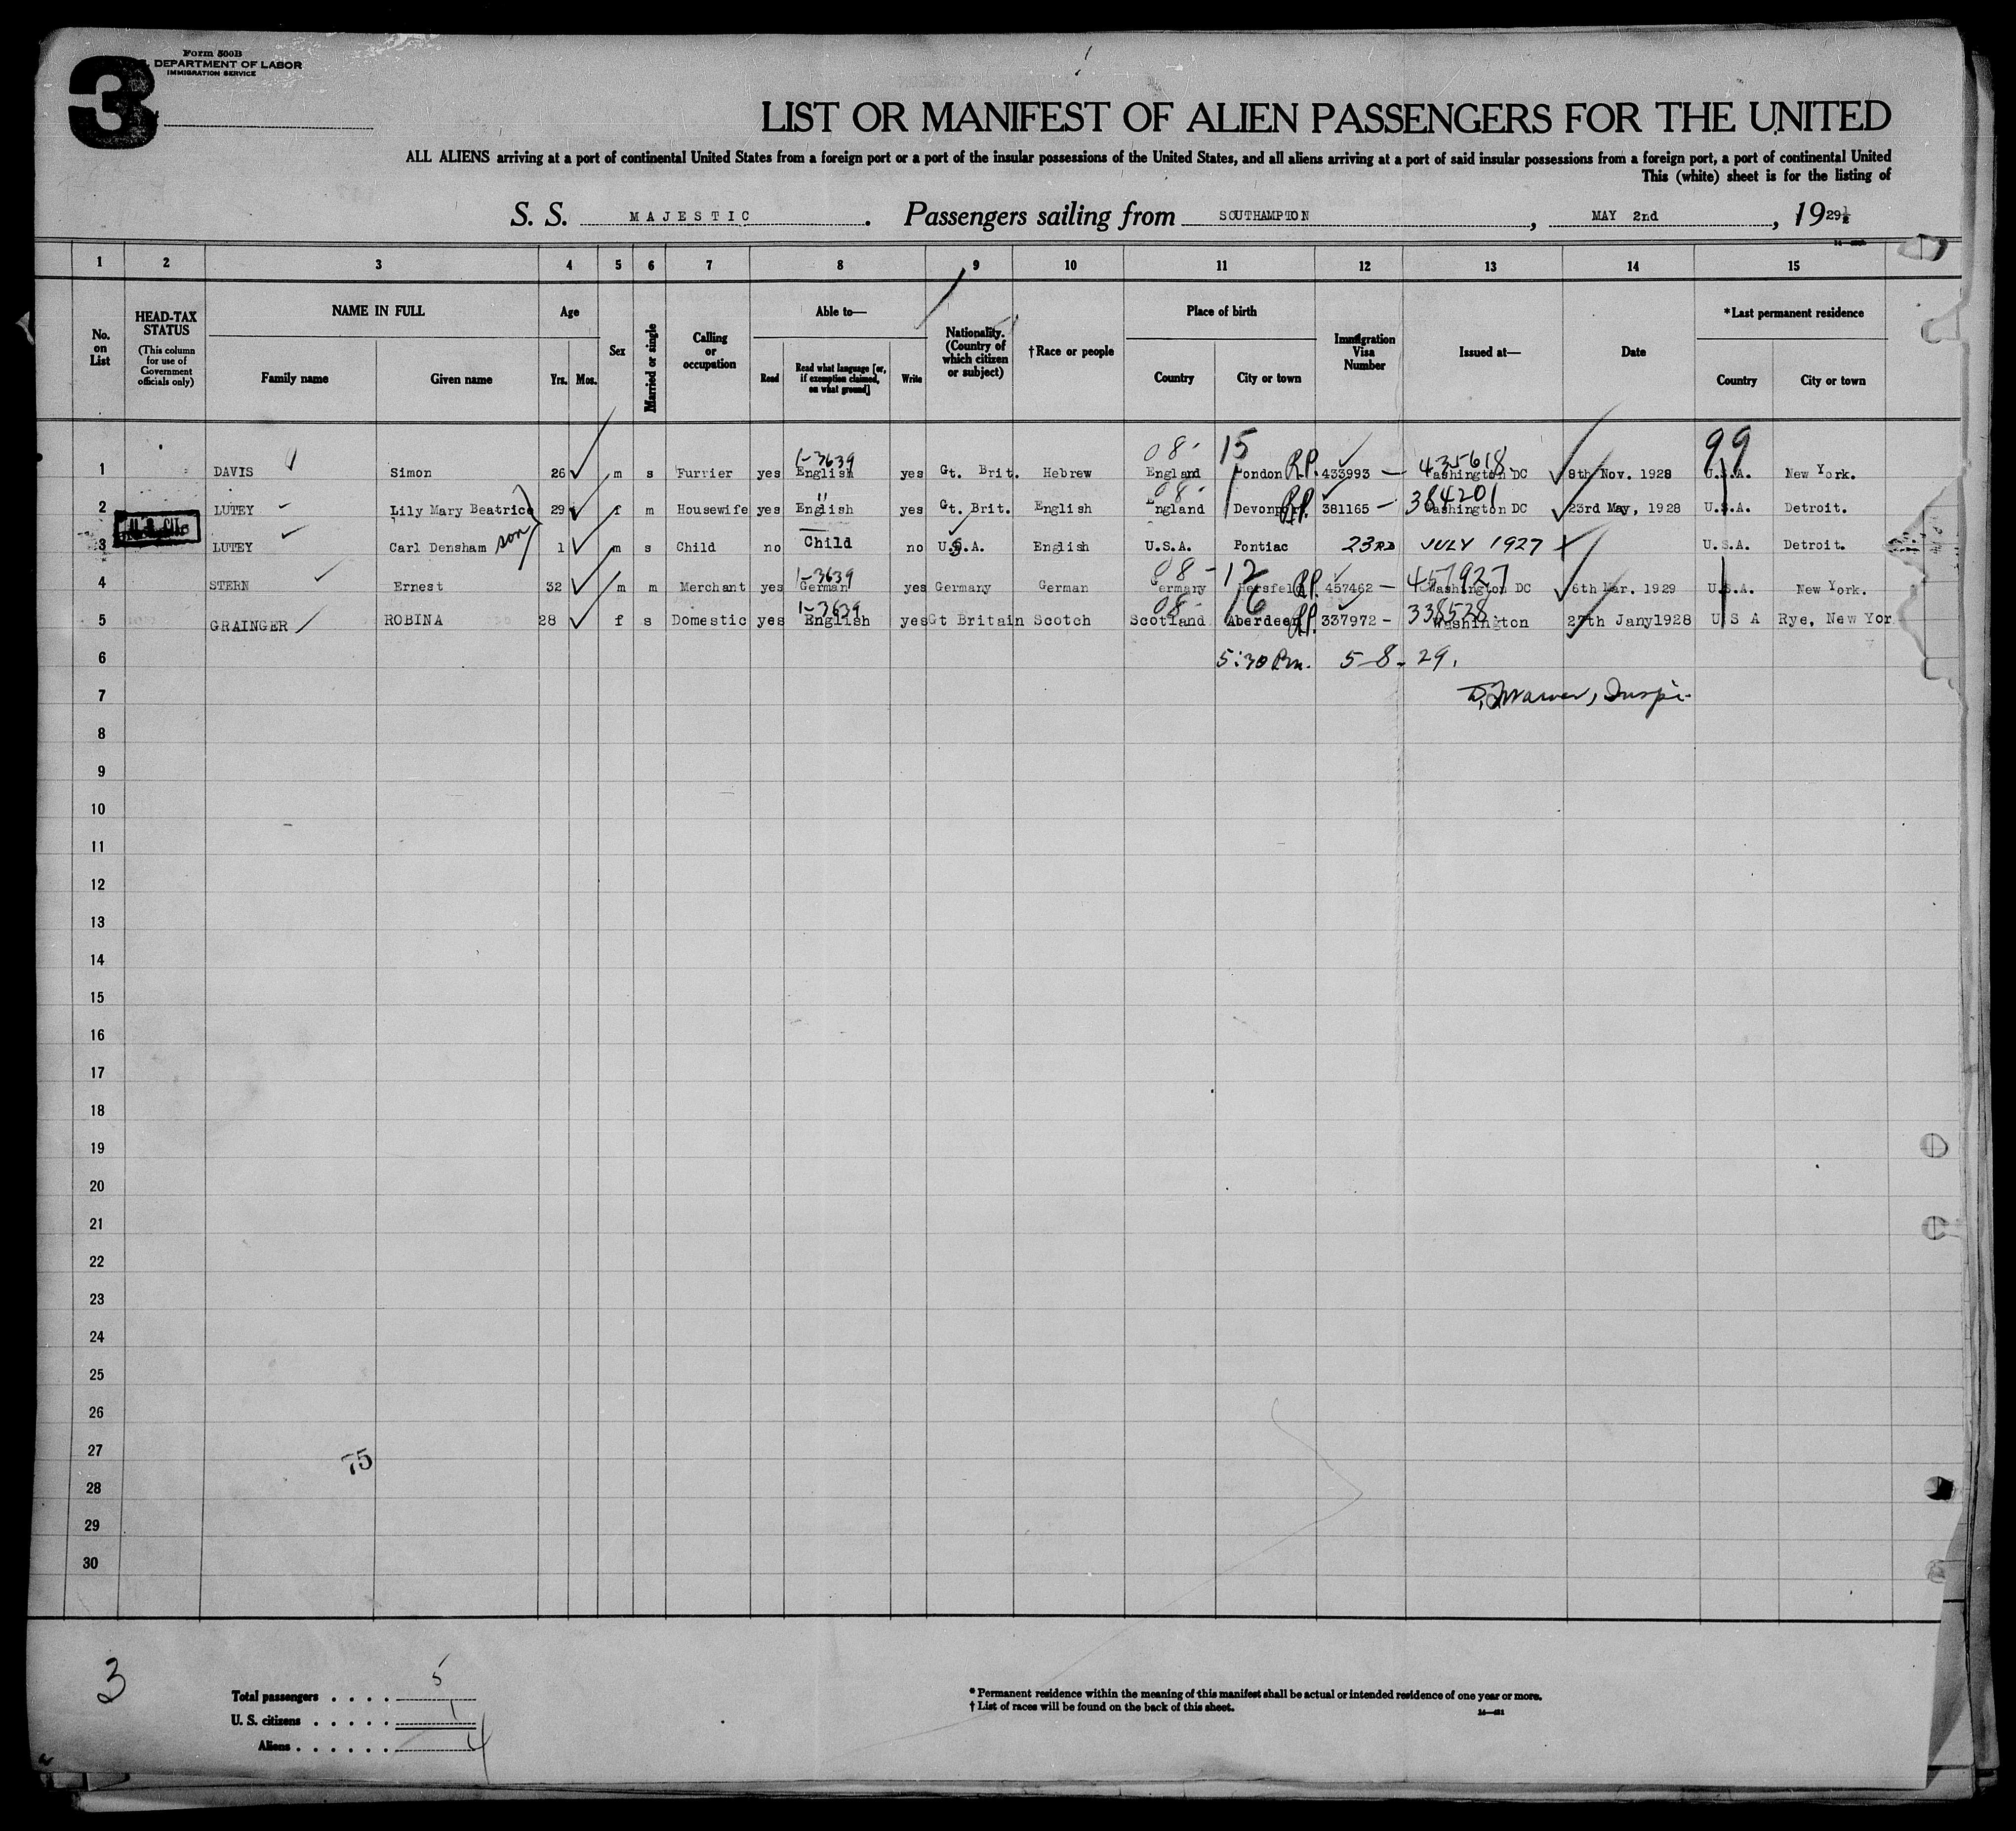 3
Form 500B
DEPARTMENT OF LABOR
IMMIGRATION SERVICE
LIST OR MANIFEST OF ALIEN PASSENGERS FOR THE UNITED
ALL ALIENS arriving at a port of continental United States from a foreign port or a port of the insular possessions of the United States, and all aliens arriving at a port of said insular possessions from a foreign port, a port of continental United
This (white) sheet is for the listing of
S. S. MAJESTIC. Passengers sailing from SOUTHAMPTON, MAY 2nd, 1929
1 2 3 4 5 6 7 8 9 10 11 12 13 14 15
No. on List
HEAD-TAX STATUS (This column for use of Government officials only)
NAME IN FULL
Family name Given name
Age
Yrs. Mos.
Sex
Married or single
Calling or occupation
Able to—
Read Read what language [or, if exemption claimed, on what ground] Write
Nationality. (Country of which citizen or subject)
†Race or people
Place of birth
Country City or town
Immigration Visa Number
Issued at—
Date
*Last permanent residence
Country City or town
08- 15 99
1-3639 435618
1 DAVIS Simon 26 m s Furrier yes English yes Gt. Brit. Hebrew England London R.P. 433993 — Washington DC 8th Nov. 1928 U.S.A. New York.
08- " 384201
2 LUTEY Lily Mary Beatrice 29 f m Housewife yes English yes Gt. Brit. English England Devonport R.P. 381165 — Washington DC 23rd May, 1928 U.S.A. Detroit.
3 LUTEY Carl Densham son 1 m s Child no Child no U.S.A. English U.S.A. Pontiac 23RD JULY 1927 X U.S.A. Detroit.
1-3639 08- 12 457927
4 STERN Ernest 32 m m Merchant yes German yes Germany German Germany Hersfeld R.P. 457462 — Washington DC 6th Mar. 1929 U.S.A. New York.
1-3639 08- 16 338528
5 GRAINGER ROBINA 28 f s Domestic yes English yes Gt Britain Scotch Scotland Aberdeen R.P. 337972 - Washington 27th Jany1928 U S A Rye, New Yor
6 5:30 Pm. 5-8-29.
7
8
9
10
11
12
13
14
15
16
17
18
19
20
21
22
23
24
25
26
27
75
28
29
30
3
Total passengers . . . . 5
U. S. citizens . . . . . 1
Aliens . . . . . . 4
* Permanent residence within the meaning of this manifest shall be actual or intended residence of one year or more.
† List of races will be found on the back of this sheet.